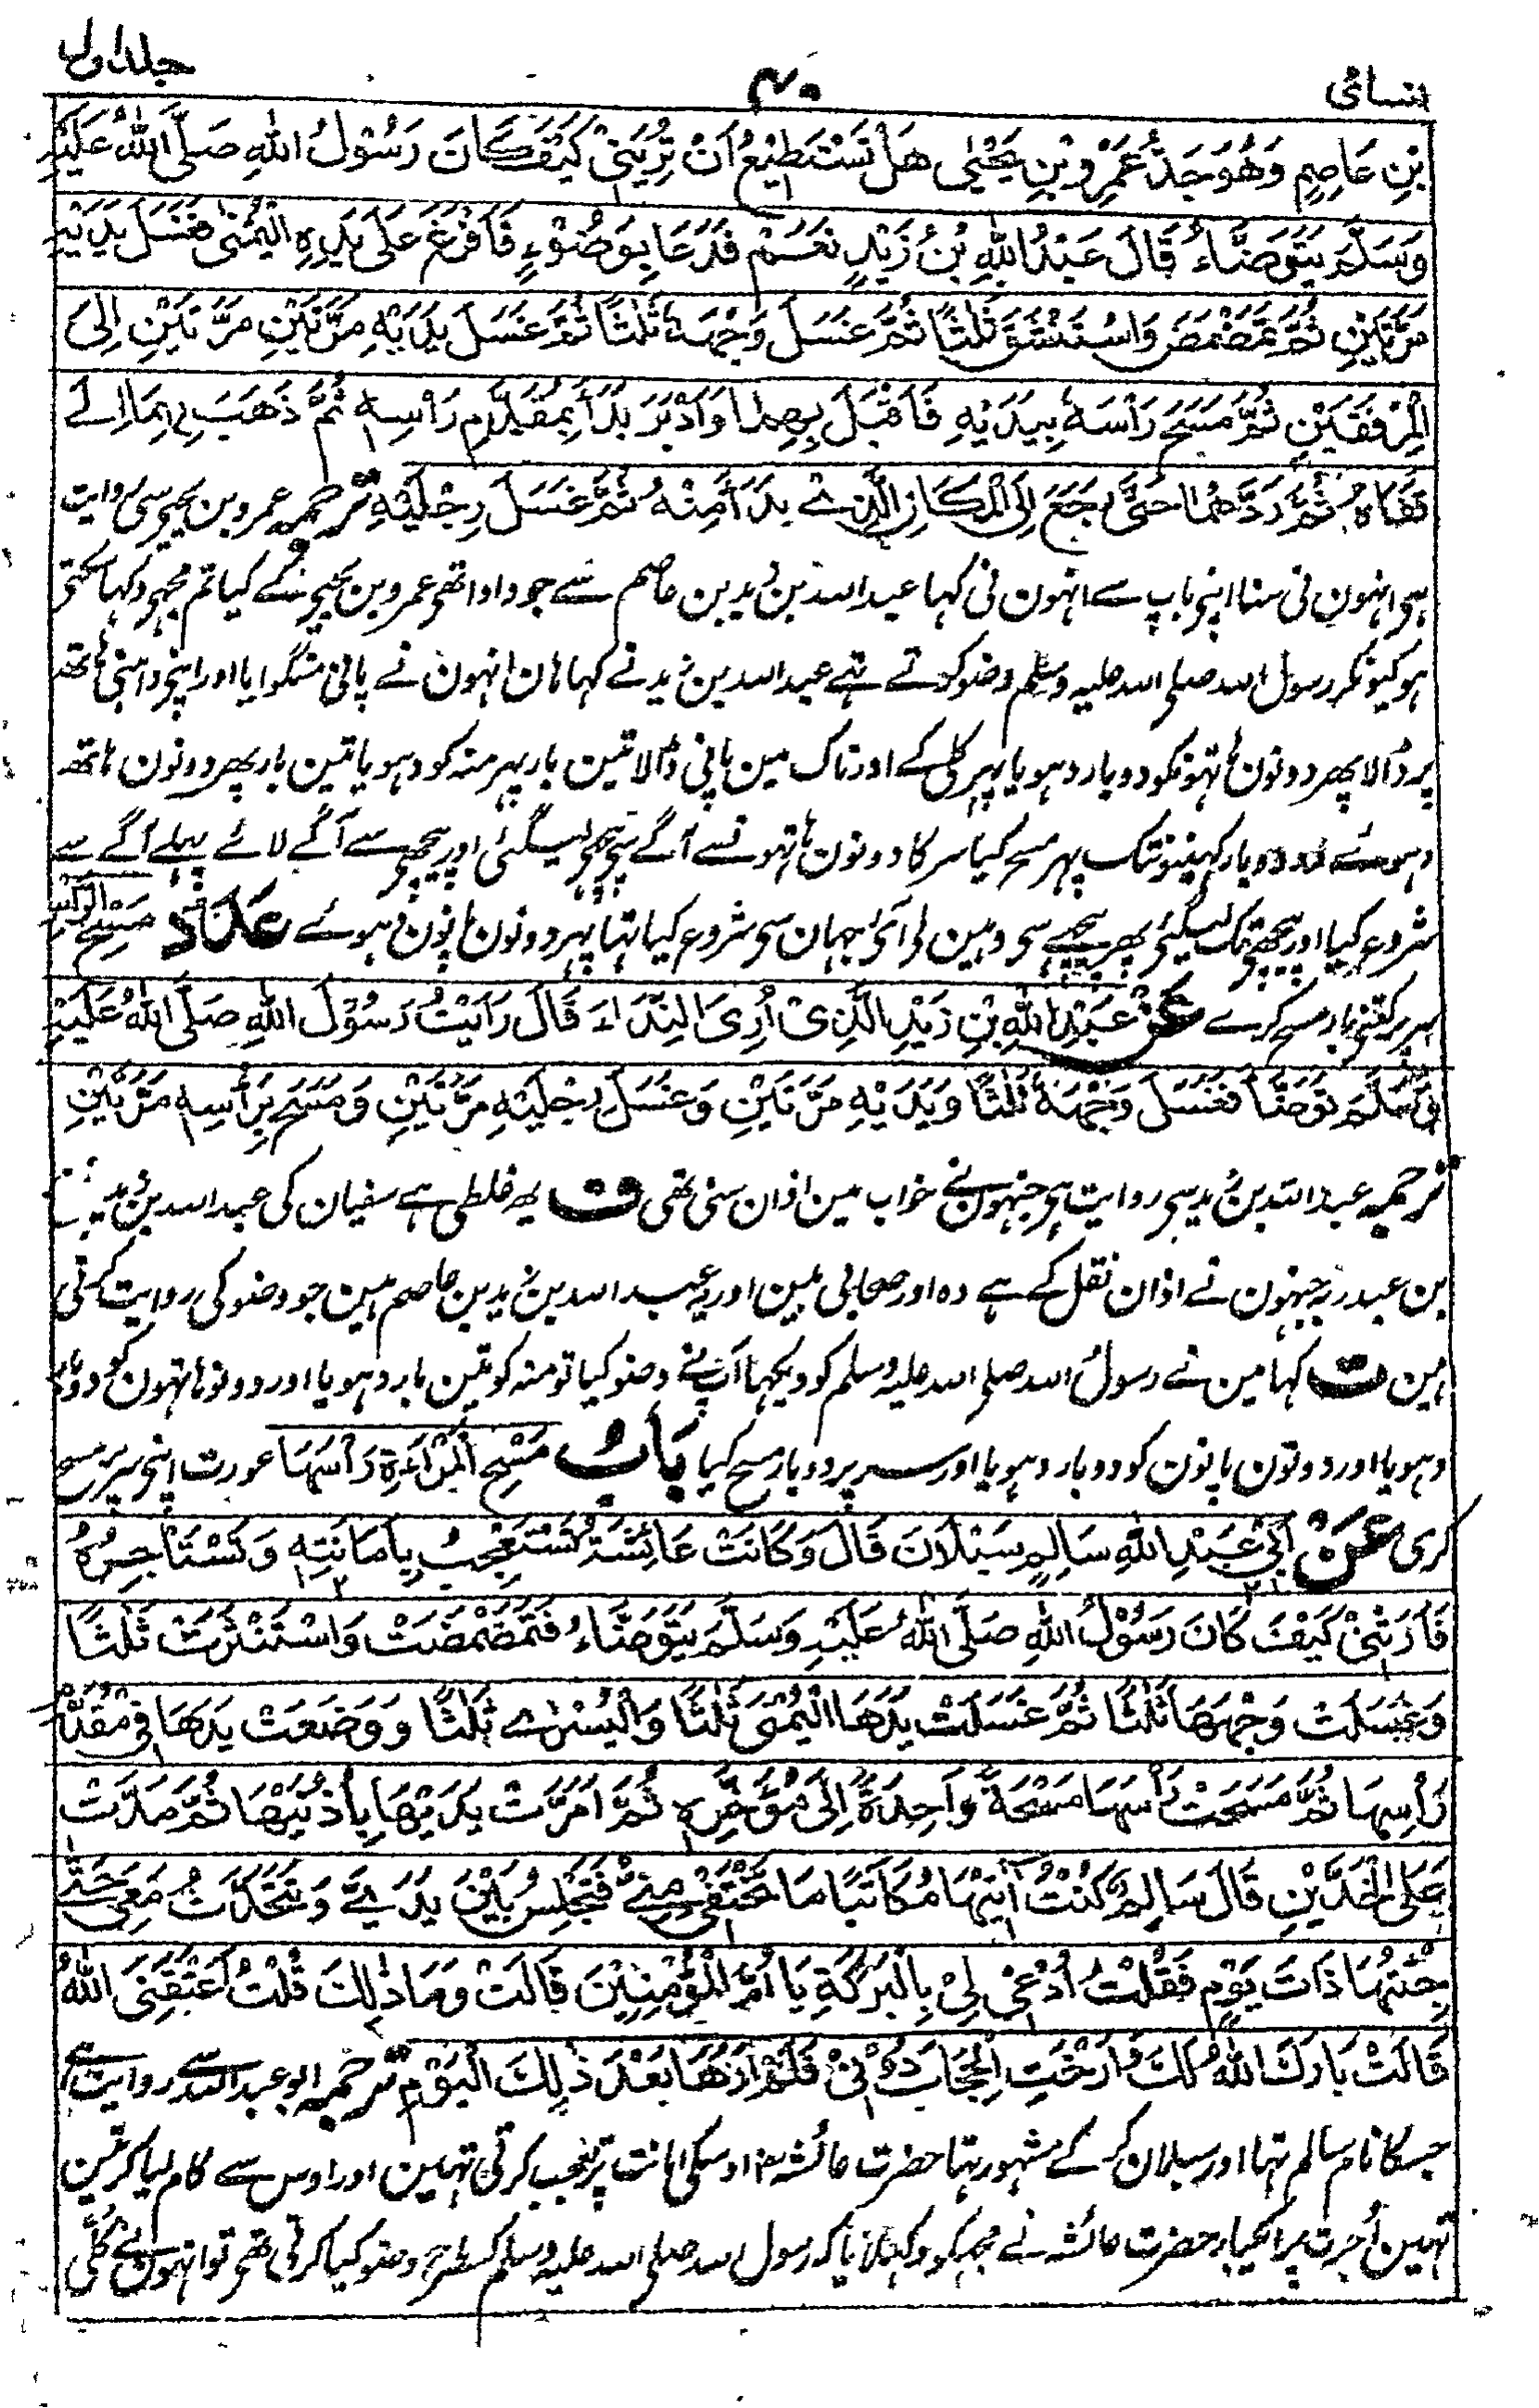 نسائی ۴۰ جلد اول
بْنِ عَاصِمٍ وَهُوَ جَدُّ عَمْرِو بْنِ يَحْيٰى هَلْ تَسْتَطِيْعُ اَنْ تُرِيَنِىْ كَيْفَ كَانَ رَسُوْلُ اللّٰهِ صَلَّى اللّٰهُ عَلَيْهِ
وَسَلَّمَ يَتَوَضَّاءُ قَالَ عَبْدُ اللّٰهِ بْنُ زَيْدٍ نَعَمْ فَدَعَا بِوَضُوْءٍ فَاَفْرَغَ عَلٰى يَدِهِ الْيُمْنٰى فَغَسَلَ يَدَيْهِ
مَرَّتَيْنِ ثُمَّ تَمَضْمَضَ وَاسْتَنْشَقَ ثَلٰثًا ثُمَّ غَسَلَ وَجْهَهٗ ثَلٰثًا ثُمَّ غَسَلَ يَدَيْهِ مَرَّتَيْنِ مَرَّتَيْنِ اِلَى
الْمِرْفَقَيْنِ ثُمَّ مَسَحَ رَاْسَهٗ بِيَدَيْهِ فَاَقْبَلَ بِهِمَا وَاَدْبَرَ بَدَاَ بِمُقَدَّمِ رَاْسِهٖ ثُمَّ ذَهَبَ بِهِمَا اِلٰے
قَفَاهُ ثُمَّ رَدَّهُمَا حَتّٰى رَجَعَ اِلَى الْمَكَانِ الَّذِے بَدَاَ مِنْهُ ثُمَّ غَسَلَ رِجْلَيْهِ ترجمہ عمرو بن یحیے سی روایت
ہی انہون نی سنا اپنی باپ سے انہون نی کہا عبد اللہ بن زید بن عاصم سے جو دادا تھی عمرو بن یحیے کے کیا تم مجہی دکہا سکتی
ہو کیونکر رسول اللہ صلی اللہ علیہ وسلم وضو کرتے تہے عبد اللہ بن زید نے کہا ہان انہون نے پانی منگوایا اور اپنی داہنی ہاتھ
پر ڈالا پھر دونون ہاتہونکو دو بار دہویا پہر کلی کے اور ناک مین پانی ڈالا تین بار پہر منہ کو دہویا تین بار پھر دونون ہاتھ
دہوئے دو دو بار کہنیونتک پہر مسح کیا سر کا دونون ہاتہونسے آگے سی پیچہی لیگئی اور پیچہی سے آگے لائے پہلے آگے سے
شروع کیا اور پیچھے تک لیگئی پھر پیچہے سی وہین لی آئی جہان سی شروع کیا تہا پہر دونون پانون دہوئے عَدَدُ مَسْحِ الرَّأْسِ
سر پر کتنی بار مسح کرے عَنْ عَبْدِ اللّٰهِ بْنِ زَيْدِ الَّذِىْ اُرِىَ النِّدَاءَ قَالَ رَاَيْتُ رَسُوْلَ اللّٰهِ صَلَّى اللّٰهُ عَلَيْهِ
وَسَلَّمَ تَوَضَّاَ فَغَسَلَ وَجْهَهٗ ثَلٰثًا وَيَدَيْهِ مَرَّتَيْنِ وَغَسَلَ رِجْلَيْهِ مَرَّتَيْنِ وَمَسَحَ بِرَاْسِهٖ مَرَّتَيْنِ
ترجمہ عبد اللہ بن زید سی روایت ہی جنہون نے خواب مین اذان سنی تھی ف یہ غلطی ہے سفیان کی عبد اللہ بن زید
بن عبد ربہ جنہون نے اذان نقل کے ہے وہ اور صحابی ہین اور یہ عبد اللہ بن زید بن عاصم ہین جو وضو کی روایت کرتی
ہین ت کہا مین نے رسول اللہ صلی اللہ علیہ وسلم کو دیکہا آپ نے وضو کیا تو منہ کو تین بار دہویا اور دونو ہاتہون کو دو بار
دہویا اور دونون پانون کو دو بار دہویا اور سر پر دو بار مسح کیا بَابُ مَسْحِ الْمَرْاَةِ رَاْسَهَا عورت اپنی سر پر مسح
کری عَنْ اَبِىْ عَبْدِ اللّٰهِ سَالِمٍ سَبَلَانَ قَالَ وَكَانَتْ عَائِشَةُ تَسْتَعْجِبُ بِاَمَانَتِهٖ وَتَسْتَاْجِرُهٗ
فَاَرَتْنِىْ كَيْفَ كَانَ رَسُوْلُ اللّٰهِ صَلَّى اللّٰهُ عَلَيْهِ وَسَلَّمَ يَتَوَضَّاءُ فَتَمَضْمَضَتْ وَاسْتَنْثَرَتْ ثَلٰثًا
وَغَسَلَتْ وَجْهَهَا ثَلٰثًا ثُمَّ غَسَلَتْ يَدَهَا الْيُمْنٰى ثَلٰثًا وَالْيُسْرٰے ثَلٰثًا وَوَضَعَتْ يَدَهَا فِىْ مُقَدَّمِ
رَاْسِهَا ثُمَّ مَسَحَتْ رَاْسَهَا مَسْحَةً وَّاحِدَةً اِلٰى مُؤَخَّرِهٖ ثُمَّ اَمَرَّتْ يَدَيْهَا بِاُذُنَيْهَا ثُمَّ مَدَّتْ
عَلَى الْخَدَّيْنِ قَالَ سَالِمٌ كُنْتُ اٰتِيْهَا مُكَاتَبًا مَا تَخْتَفِىْ مِنِّىْ فَتَجْلِسُ بَيْنَ يَدَىَّ وَتَتَحَدَّثُ مَعِىْ حَتّٰى
جِئْتُهَا ذَاتَ يَوْمٍ فَقُلْتُ اُدْعِىْ لِىْ بِالْبَرَكَةِ يَا اُمَّ الْمُؤْمِنِيْنَ قَالَتْ وَمَا ذٰلِكَ قُلْتُ اَعْتَقَنِىَ اللّٰهُ
قَالَتْ بَارَكَ اللّٰهُ لَكَ وَاَرْخَتِ الْحِجَابَ دُوْنِىْ فَلَمْ اَرَهَا بَعْدَ ذٰلِكَ الْيَوْمِ ترجمہ ابو عبد اللہ سے روایت ہے
جسکا نام سالم تہا اور سبلان کر کے مشہور تہا حضرت عائشہ اوسکی امانت پر تعجب کرتی تہین اور اوس سے کام لیا کرتین
تہین اُجرت پر ایکبار حضرت عائشہ نے مجہکو دکہلایا کہ رسول اللہ صلی اللہ علیہ وسلم کسطرح وضو کیا کرتی تھی تو انہون نے کُلّی